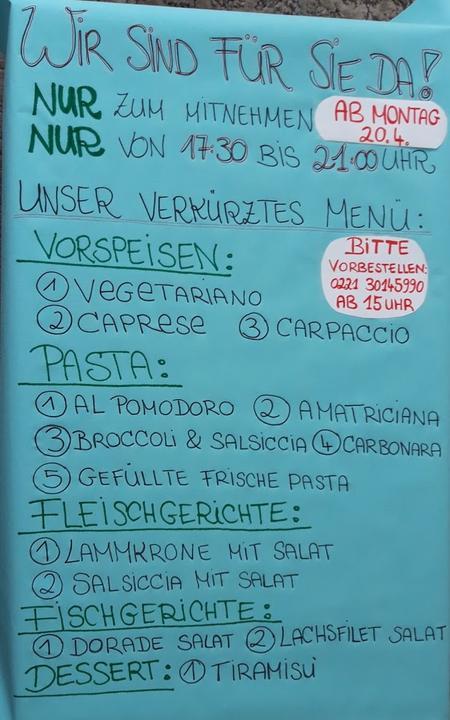 WIR SIND FÜR SIE DA!
NUR ZUM MITNEHMEN
AB MONTAG
20.4.
NUR VON 17:30 BIS 21:00 UHR
UNSER VERKÜRZTES MENÜ:
VORSPEISEN:
BITTE
VORBESTELLEN:
0221 30145990
AB 15 UHR
1 VEGETARIANO
2 CAPRESE 3 CARPACCIO
PASTA:
1 AL POMODORO 2 AMATRICIANA
3 BROCCOLI & SALSICCIA 4 CARBONARA
5 GEFÜLLTE FRISCHE PASTA
FLEISCHGERICHTE:
1 LAMMKRONE MIT SALAT
2 SALSICCIA MIT SALAT
FISCHGERICHTE:
1 DORADE SALAT 2 LACHSFILET SALAT
DESSERT: 1 TIRAMISÙ